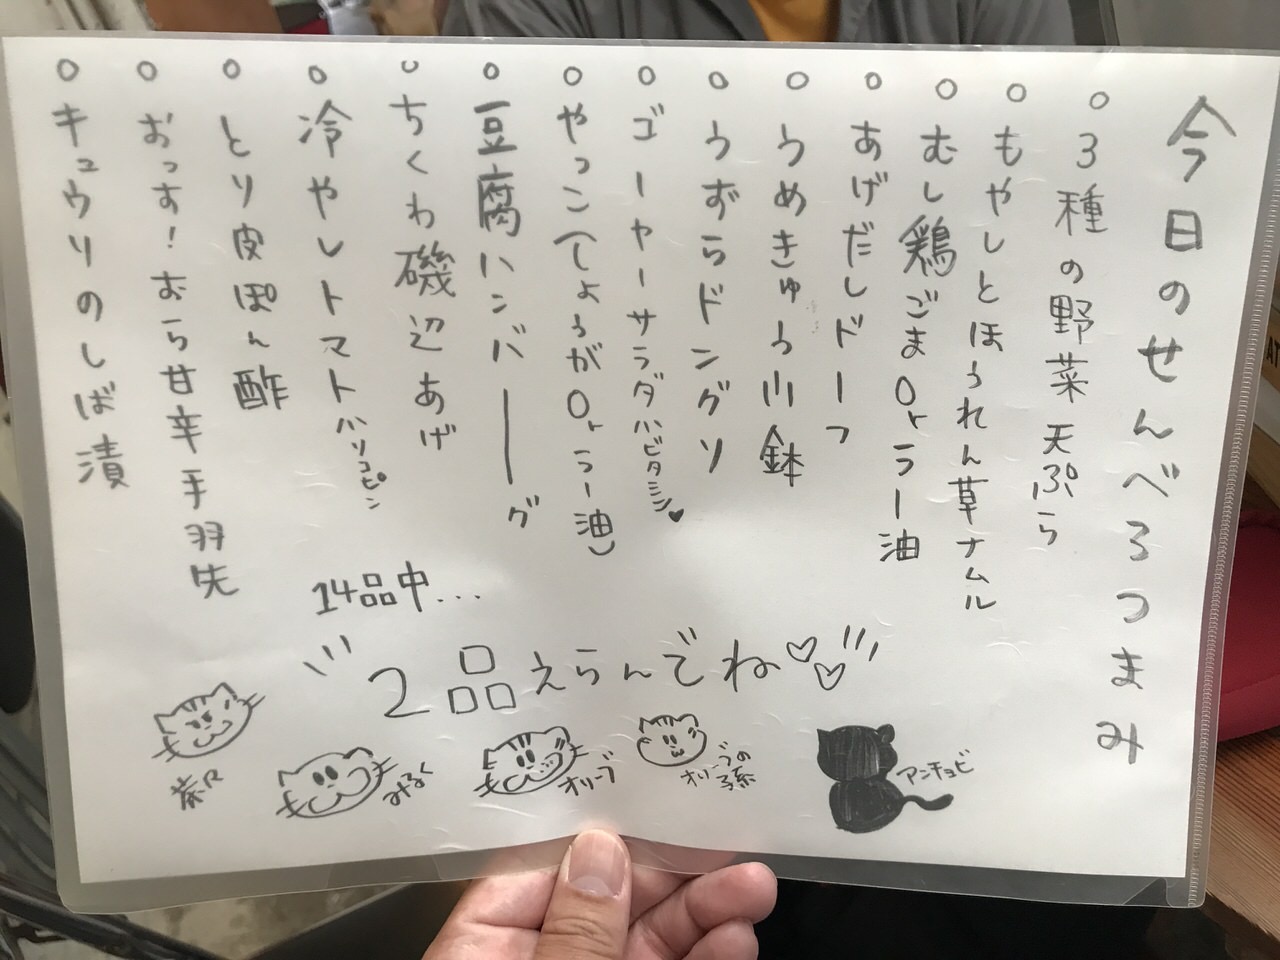 今日のせんべろつまみ
○3種の野菜天ぷら
○もやしとほうれん草ナムル
○むし鶏ごまorラー油
○あげだしドーフ
○うめきゅう小鉢
○うずらドングソ
○ゴーヤーサラダハビタミン♥
○やっこ(しょうがorラー油)
○豆腐ハンバーーグ
○ちくわ磯辺あげ
○冷やしトマトハリコピン
○とり皮ぽん酢
○おっす!おら甘辛手羽先
○キュウリのしば漬
14品中...
2品えらんでね♡♡
みるく
オリーブ
オリーブの
アンチョビ